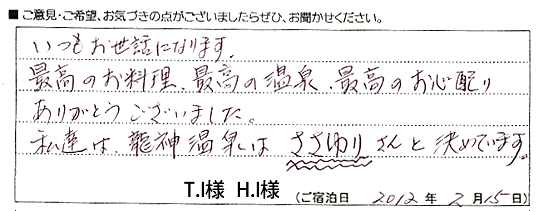 ■ご意見・ご希望、お気づきの点がございましたらぜひ、お聞かせください。
いつもお世話になります。
最高のお料理、最高の温泉、最高のお心配り
ありがとうございました。
私達は、龍神温泉は ささゆり さんと決めています。
T.I様 H.I様 (ご宿泊日 2012 年 2 月 15 日)